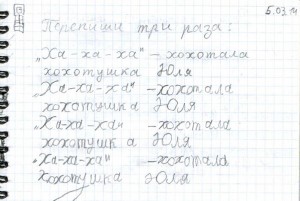 5.03.11
Перепиши три раза:
„Ха-ха-ха" – хохотала
хохотушка Юля
„Ха-ха-ха" –хохотала
хохотушка Юля
„Ха-ха-ха" –хохотала
хохотушка Юля.
„Ха-ха-ха" –хохотала
хохотушка Юля